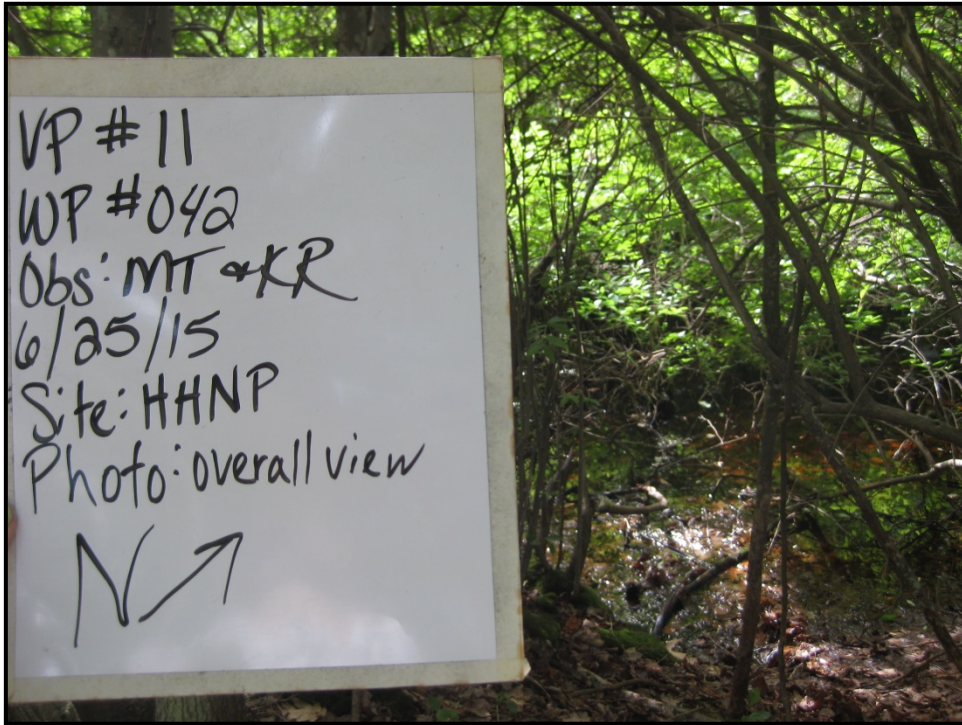 VP #11
WP #042
Obs: MT & KR
6/25/15
Site: HHNP
Photo: overall view
N↗